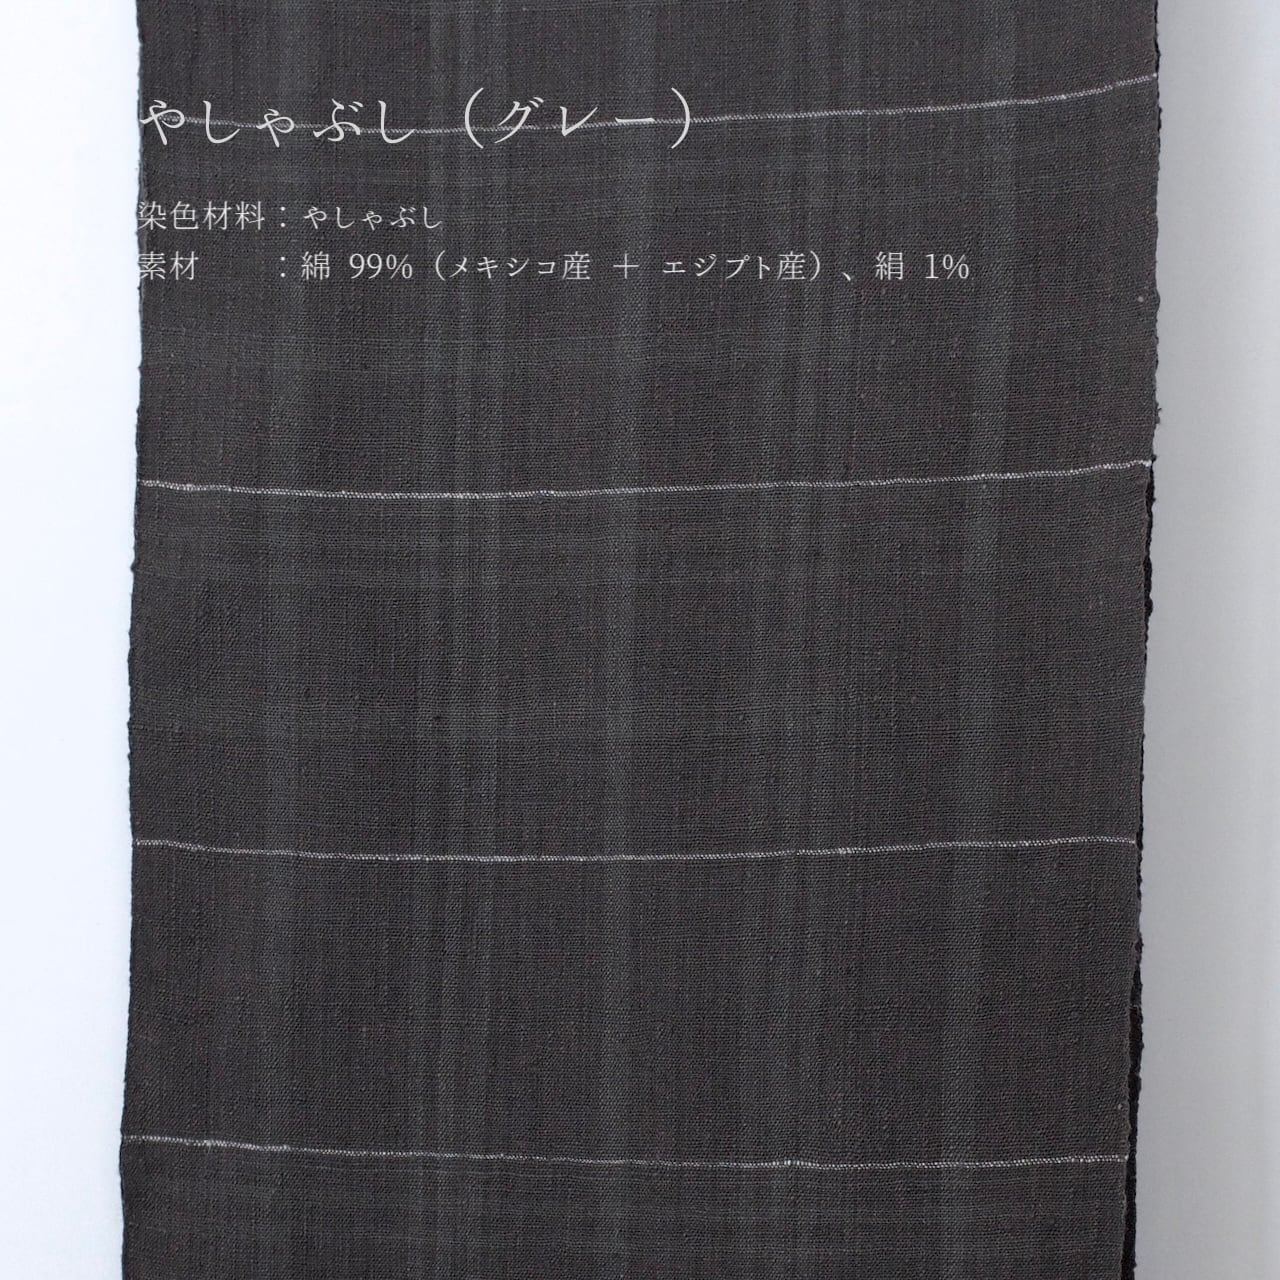 やしゃぶし（グレー）
染色材料：やしゃぶし
素材　　：綿 99%（メキシコ産 ＋ エジプト産）、絹 1%